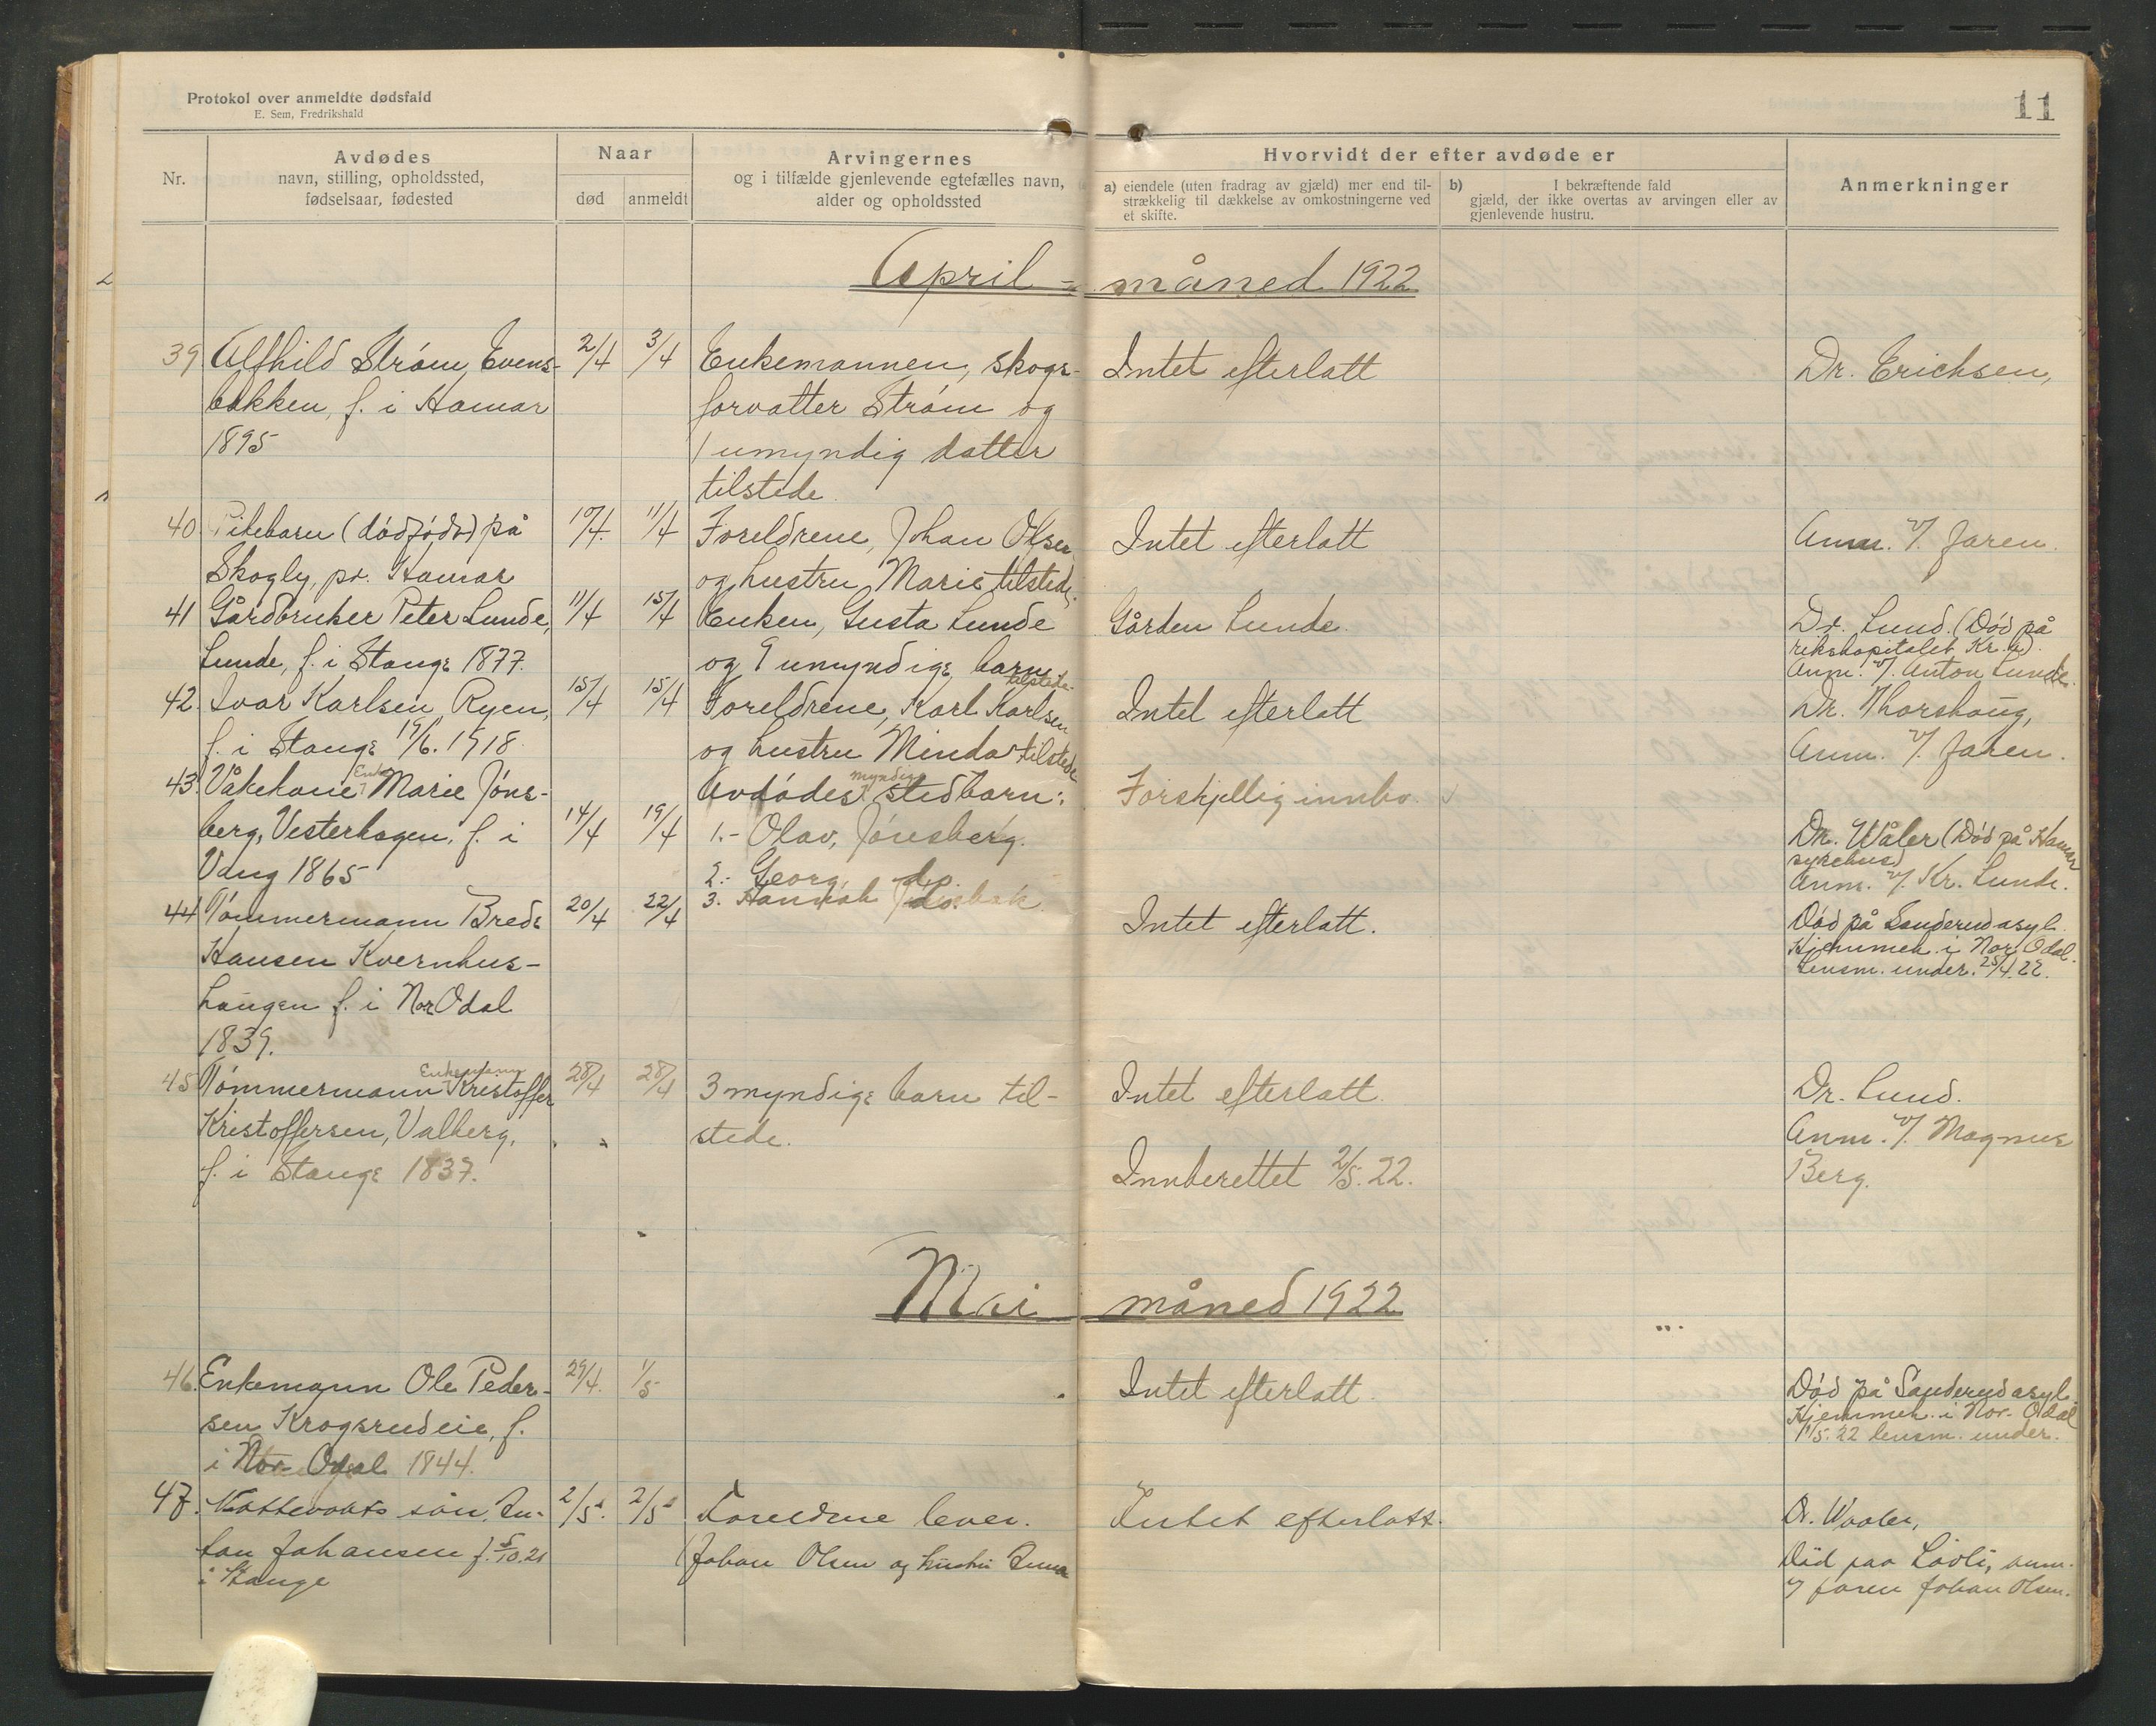 Protokol over anmeldte dødsfald
E. Sem, Fredrikshald
11
Nr.
Avdødes
navn, stilling, opholdssted,
fødselsaar, fødested
Naar
død
anmeldt
Arvingernes
og i tilfælde gjenlevende egtefælles navn,
alder og opholdssted
Hvorvidt der efter avdøde er
a) eiendele (uten fradrag av gjæld) mer end til-
strækkelig til dækkelse av omkostningerne ved
et skifte.
b) I bekræftende fald
gjæld, der ikke overtas av arvingen eller av
gjenlevende hustru.
Anmerkninger
April - måned 1922
39 Alfhild Strøm, Evens- 2/4 3/4 Enkemannen, skogs- Intet efterlatt Dr. Erichsen,
bakken, f. i Hamar forvalter Strøm og
1895 1 umyndig datter
tilstede.
40 Pikebarn (dødfødt) på 10/4. 11/4 Foreldrene, Johan Olsen Intet efterlatt Anm. v/. faren.
Skogly, pr. Hamar og hustru Marie tilstede.
41 Gårdbruker Peter Lunde, 11/4 15/4 Enken, Gusta Lunde Gården Lunde. Dr. Lund. (Død på
Lunde, f. i Stange 1877. og 9 umyndige barn tilstede. rikshospitalet Kr.a).
Anm. v/. Anton Lunde.
42. Ivar Karlsen Ryen, 15/4 15/4 Foreldrene, Karl Karlsen Intet efterlatt Dr. Thorshaug,
f. i Stange 19/6. 1918. og hustru Minda tilstede Anm. v/. faren.
43. Våkekone Enke Marie Jøns- 14/4 19/4 Avdødes myndige stedbarn: Forskjellig innbo.
berg, Vesterhagen, f. i 1.- Olav, Jønsberg. Dr. Wåler (Død på Hamar
Vang 1865 2.- Georg do. sykehus)
3. Hannah do. Anm. v/. Kr. Lunde.
44 Tømmermann Brede 20/4 22/4 Intet efterlatt. Død på Sanderudasyl.
Hansen Kvernhus- Hjemmeh. i Nor. Odal.
haugen f. i Nor Odal Lensm. under. 25/4.22.
1839.
45 Tømmermann Enkemann Kristoffer 28/4 28/4 3 myndige barn til- Intet efterlatt. Dr. Lund.
Kristoffersen, Valberg, stede. Anm. v/. Magnus
f. i Stange 1837. Innberettet 2/5. 22. Berg.
Mai måned 1922
46. Enkemann Ole Peder- 29/4. 1/5 Intet efterlatt. Død på Sanderudasyl.
sen Krogsrudeie, f. Hjemmeh. i Nor. Odal
i Nor Odal 1844. 1/5.22 lensm. under.
47. søn, 2/5. 2/5 Foreldrene lever. Intet efterlatt. Dr. Waaler,
Johansen f. 5/10.21 (Johan Olsen og hustru Død paa Løvli, anm.
i Stange v/ faren Johan Olsen.